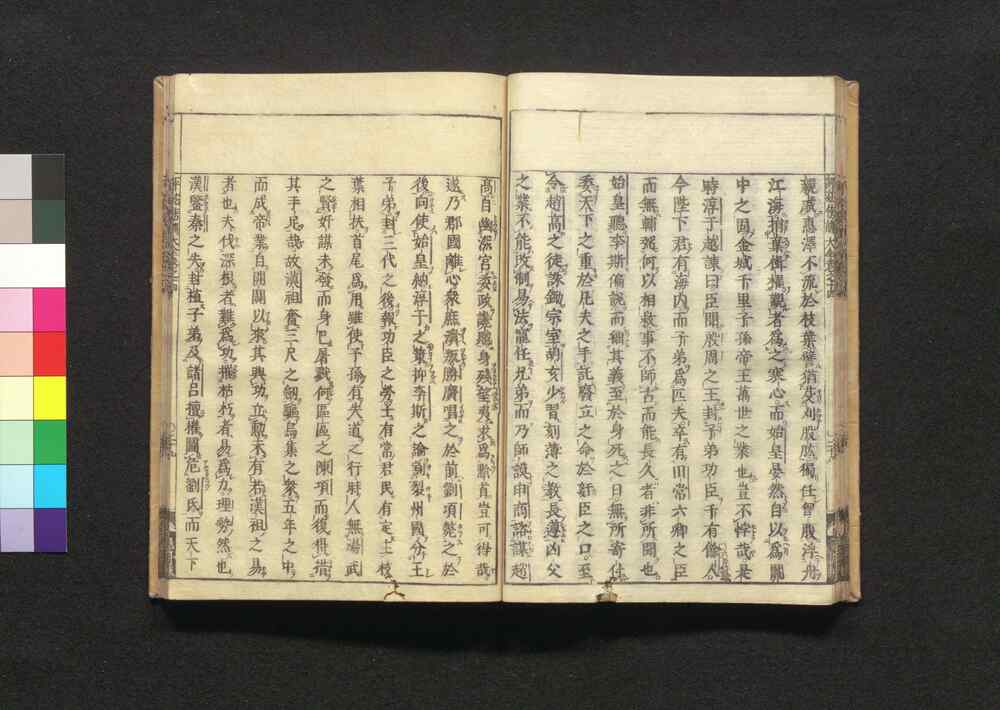 親戚惠澤不流於枝葉譬猶芟刈股肱獨任胷腹浮舟
江海捐棄楫櫂觀者爲之寒心而始皇晏然自以爲關
中之固金城千里子孫帝王萬世之業也豈不悖哉是
時淳于越諫曰臣聞殷周之王封子弟功臣千有餘人
今陛下君有海内而子弟爲匹夫卒有田常六卿之臣
而無輔弼何以相救事不師古而能長久者非所聞也
始皇聽李斯偏説而絀其義至於身死之日無所寄付
委天下之重於凡夫之手託廢立之命於姧臣之口至
令趙高之徒誅鋤宗室胡亥少習刻薄之教長遵凶父
之業不能改制易法寵任兄弟而乃師謨申商諮謀趙
高自幽深宮委政讒賊身殘望夷求爲黔首豈可得哉
遂乃郡國離心衆庶潰叛勝廣唱之於前劉項斃之於
後向使始皇納淳于之策抑李斯之論割裂州國分王
子弟封三代之後報功臣之勞士有常君民有定主枝
葉相扶首尾爲用雖使子孫有失道之行時人無湯武
之賢奸謀未發而身已屠戮何區區之陳項而復得措
其手足哉故漢祖奮三尺之劒驅烏集之衆五年之中
而成帝業自開闢以來其興功立勳未有若漢祖之易
者也夫伐深根者難爲功摧枯朽者易爲力理勢然也
漢鑒秦之失封植子弟及諸呂擅權圖危劉氏而天下